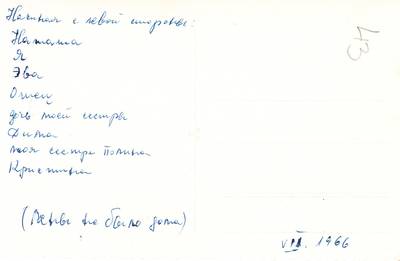 Начиная с левой стороны:
43
Наташа
Я
Эва
Отец
дочь моей сестры
Дима
моя сестра Полина
Кристина
( не было дома)
VII. 1966